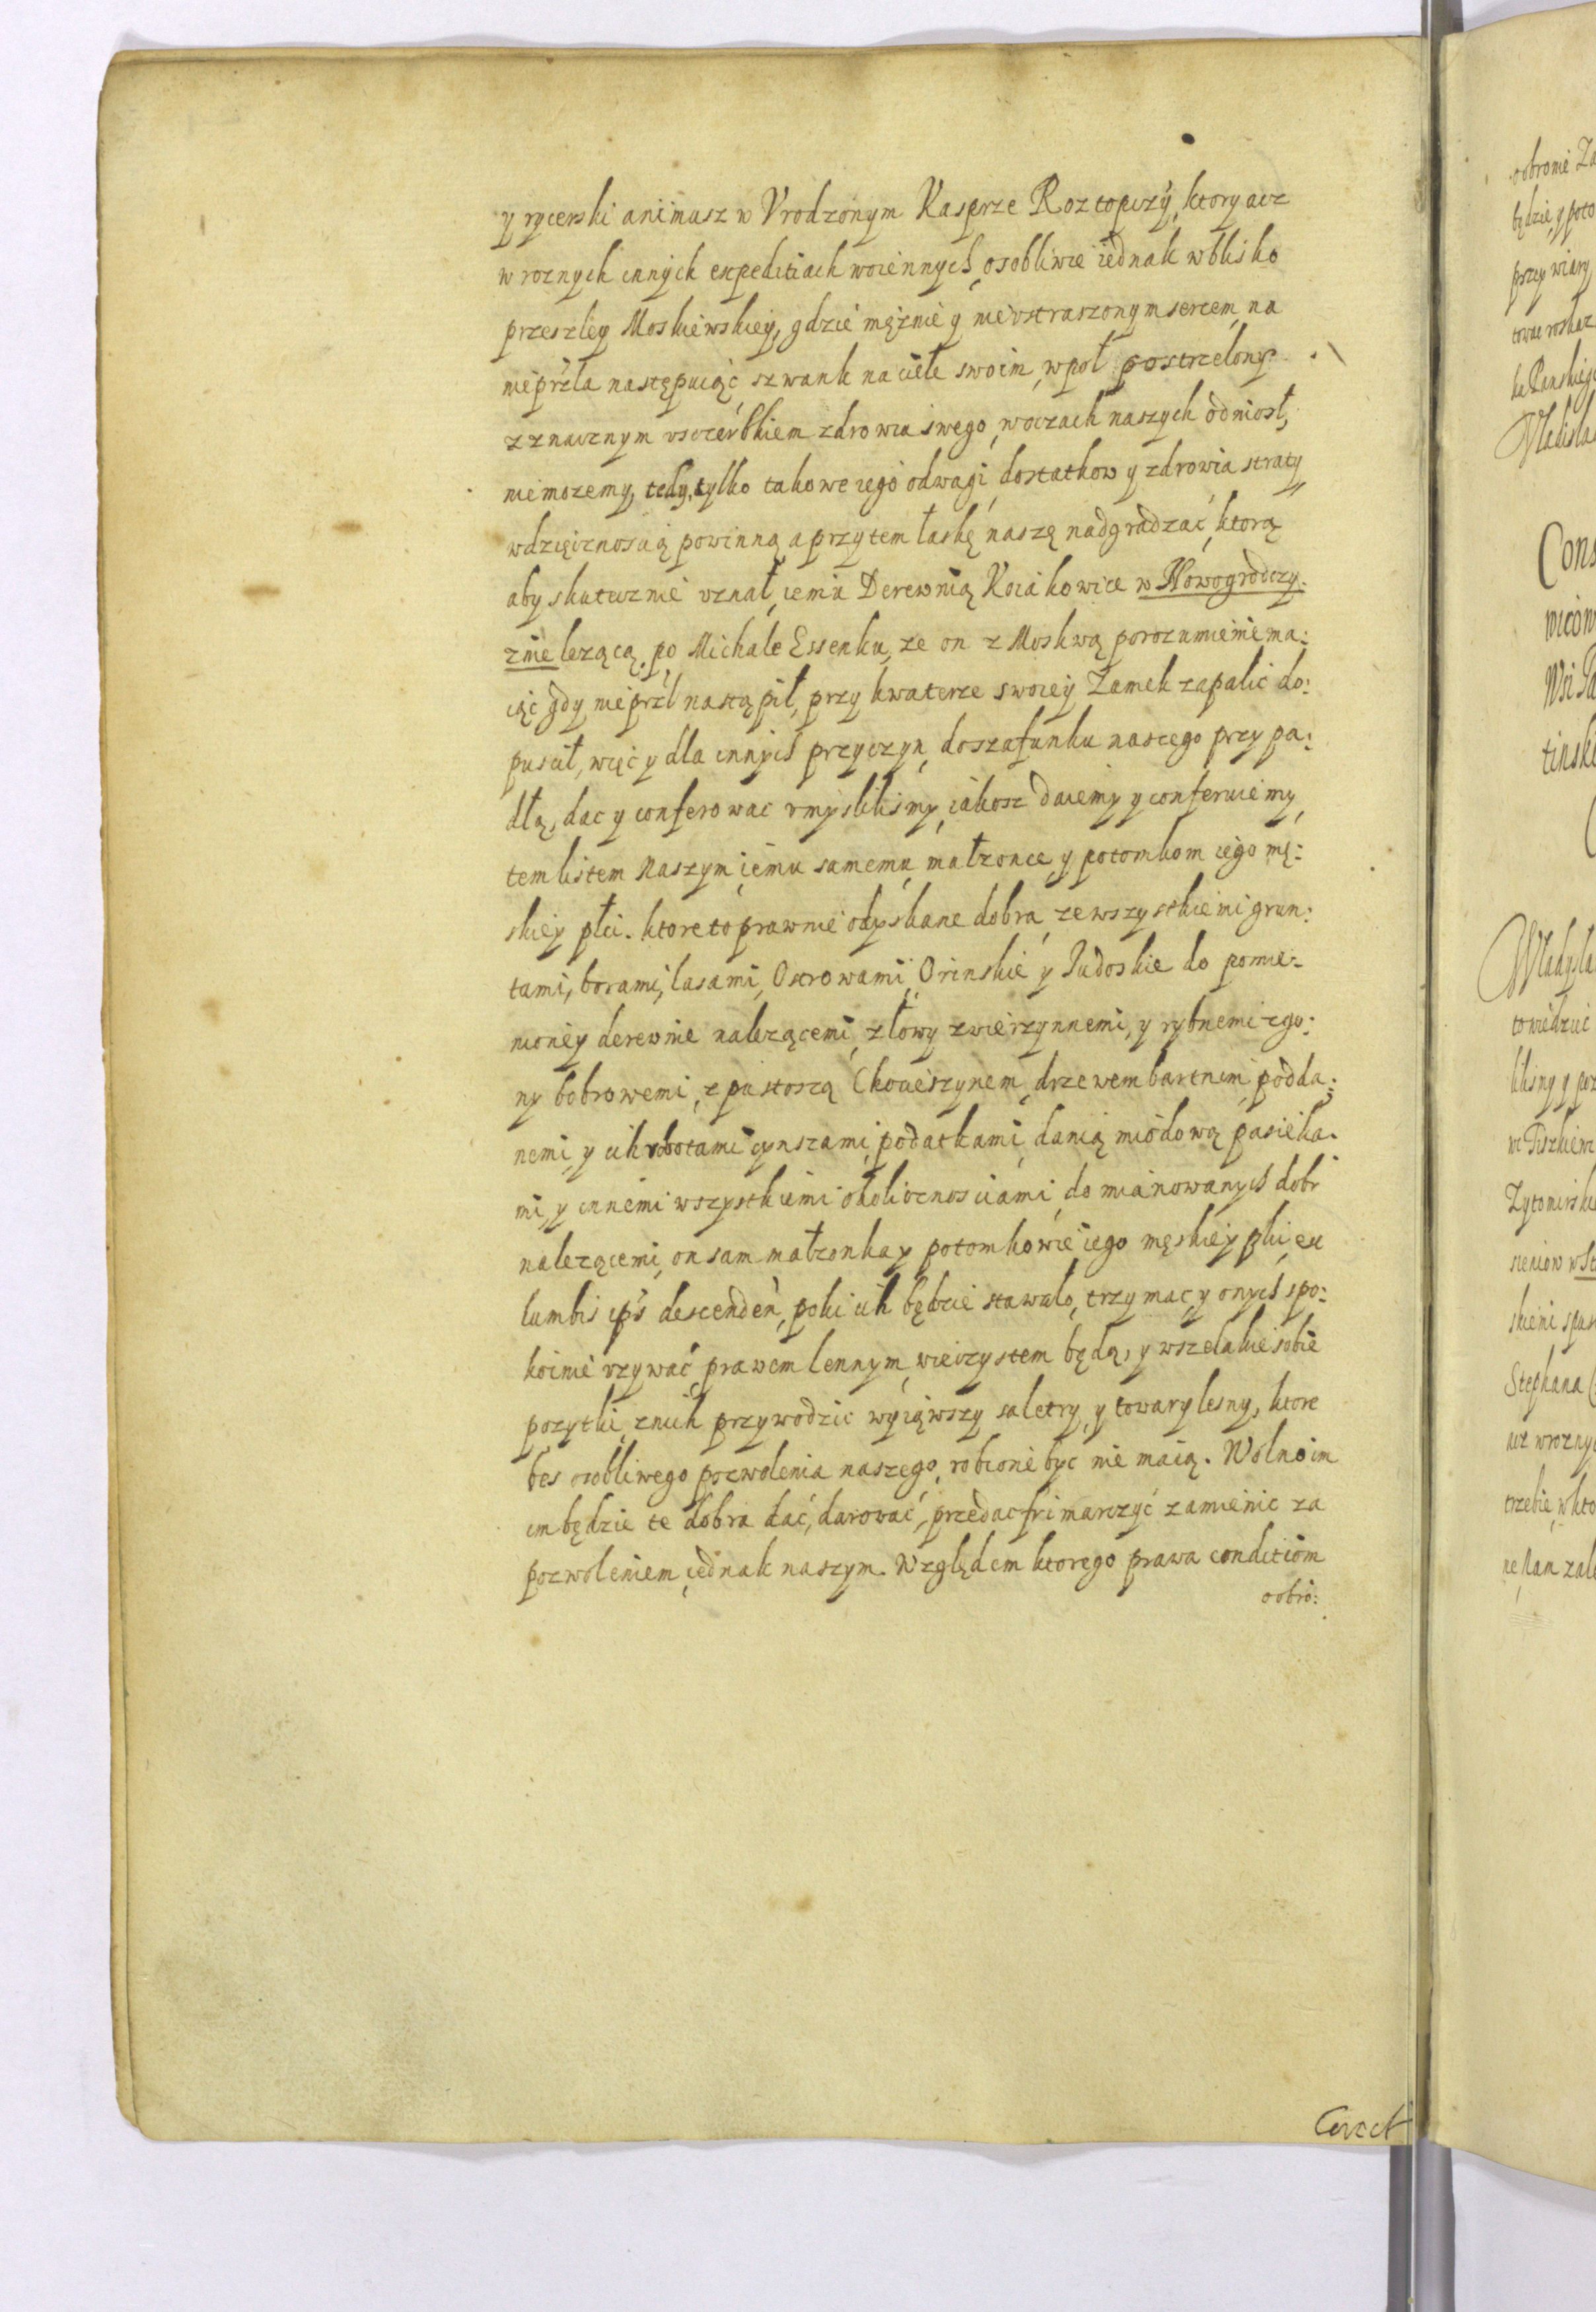 y rycerski animusz w Vrodzonym Kasprze Roztopczÿ, ktory acz
w roznych innych expeditiach woiennych, osobliwie iednak w blisko
przeszłey Moskiewskiey, gdzie mężnie y nieustraszonym sercem, na
nieprzła nastęṗuiąc, szwank na ciele swoim, wpoł postrzelony
z znacznym vsczerbkiem zdrowia swego, w oczach naszych odniosł,
nie mozemy, tedy, tylko takowe iego odwagi, dostatkow y zdrowia straty
wdzięcznoscią powinną a przytem łaskę naszę nadgradzać, ktorą
aby skutecznie vznał, iemu Derewnią Kociakowice w Nowogrodczy:
znie lezącą, po Michale Essenku, ze on z Moskwą porozumienie ma:
iąc gdy nieprzl nastąpił, przy kwaterze swoiey Zamek zapalic do:
puscił, więc y dla innych przyczyn, do szafunku naszego przypa:
dłą, dac y conferowac vmyslilismy, iakosz daiemy y conferuiemy
tem listem Naszym iemu samemu, małzonce y potomkom iego mę:
skiey płci. ktore to prawnie odyskane dobra, ze wszystkiemi grun:
tami, borami, lasami, Ostrowami, Orinskie y Sudoskie do pomie:
nioney derewnie nalezącemi, z łowy zwierzynnemi, y rybnemi zgo:
ny bobrowemi, z pustoszą Choueszynem, drzewem bartnim, podda:
nemi, y ich robotami cynszami, podatkami, danią miodową pasieka:
mi, y innemi wszystkiemi okolicznosciami, do mianowanych dobr
nalezącemi, on sam małzonka y potomkowie iego męskiey płci, ex
lumbis ips descenden, poki ich będzie stawało, trzymac y onych spo:
koinie vzywać, prawem lennym, wieczystem będą, y wszelakie sobie
pozytki, z nich przywodzic wyiąwszy saletry, y towary lesny, ktore
bes osobliwego pozwolenia naszego, robione byc nie maią. Wolno im
im będzie te dobra dać, darować, przedac frimarczyć zamienic za
pozwoleniem iednak naszym. Względem ktorego prawa conditiom
oobro: